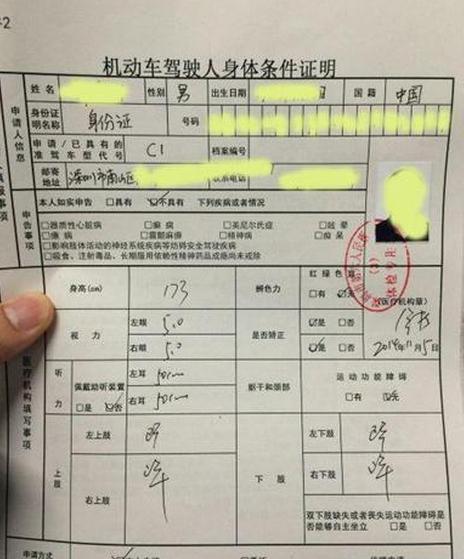 机动车驾驶人身体条件证明
申请人信息
姓名 性别 男 出生日期 国籍 中国
身份证明名称 身份证 号码
申请/已具有的准驾车型代号 C1 档案编号
邮寄 深圳市南山区 联系电话
申告事项
本人如实申告 □具有 ☑不具有 下列疾病或者情况
□器质性心脏病 □癫痫 □美尼尔氏症 □眩晕
□癔病 □震颤麻痹 □精神病 □痴呆
□影响肢体活动的神经系统疾病等妨碍安全驾驶疾病
□吸食、注射毒品、长期服用依赖性精神药品成瘾尚未戒除
医疗机构填写事项
身高(cm) 173 辨色力 红绿色盲 □有 ☑无
(医疗机构章)
视力 左眼 5.0 是否矫正 ☑是 □否
右眼 5.0 ☑是 □否
2014年11月5日
听力 左耳 50cm 躯干和颈部 运动功能障碍
佩戴助听装置 □是 ☑否 右耳 50cm □有 ☑无
上肢 左上肢 下肢 左下肢
右上肢 右下肢
双下肢缺失或者丧失运动功能障碍是否能够自主坐立 □是 □否
申请方式